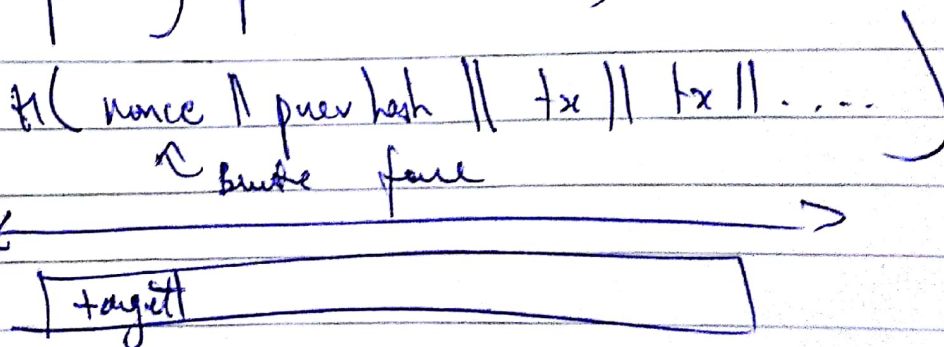 H( nonce || prev hash || tx || tx || ..... )
Brute force
target